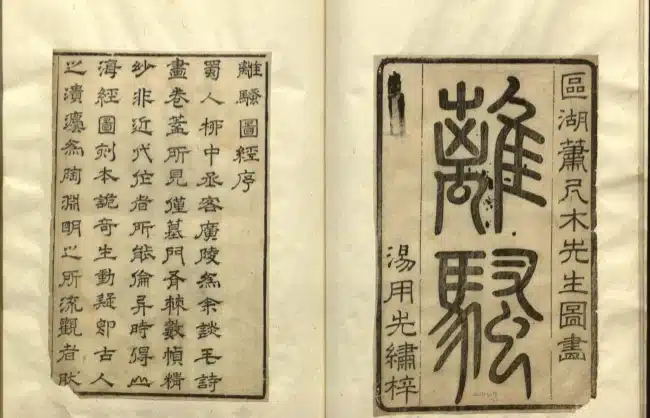 區湖蕭尺木先生圖畫
離騷
湯用先繡梓
離騷圖經序
蜀人栁中丞客廣陵為余談毛詩
畫卷蓋所見僅墓門斧棘數幀精
紗非近代作者所能倫異時得山
海經圖刻本詭奇生動疑即古人
之為陶淵明之所流觀者